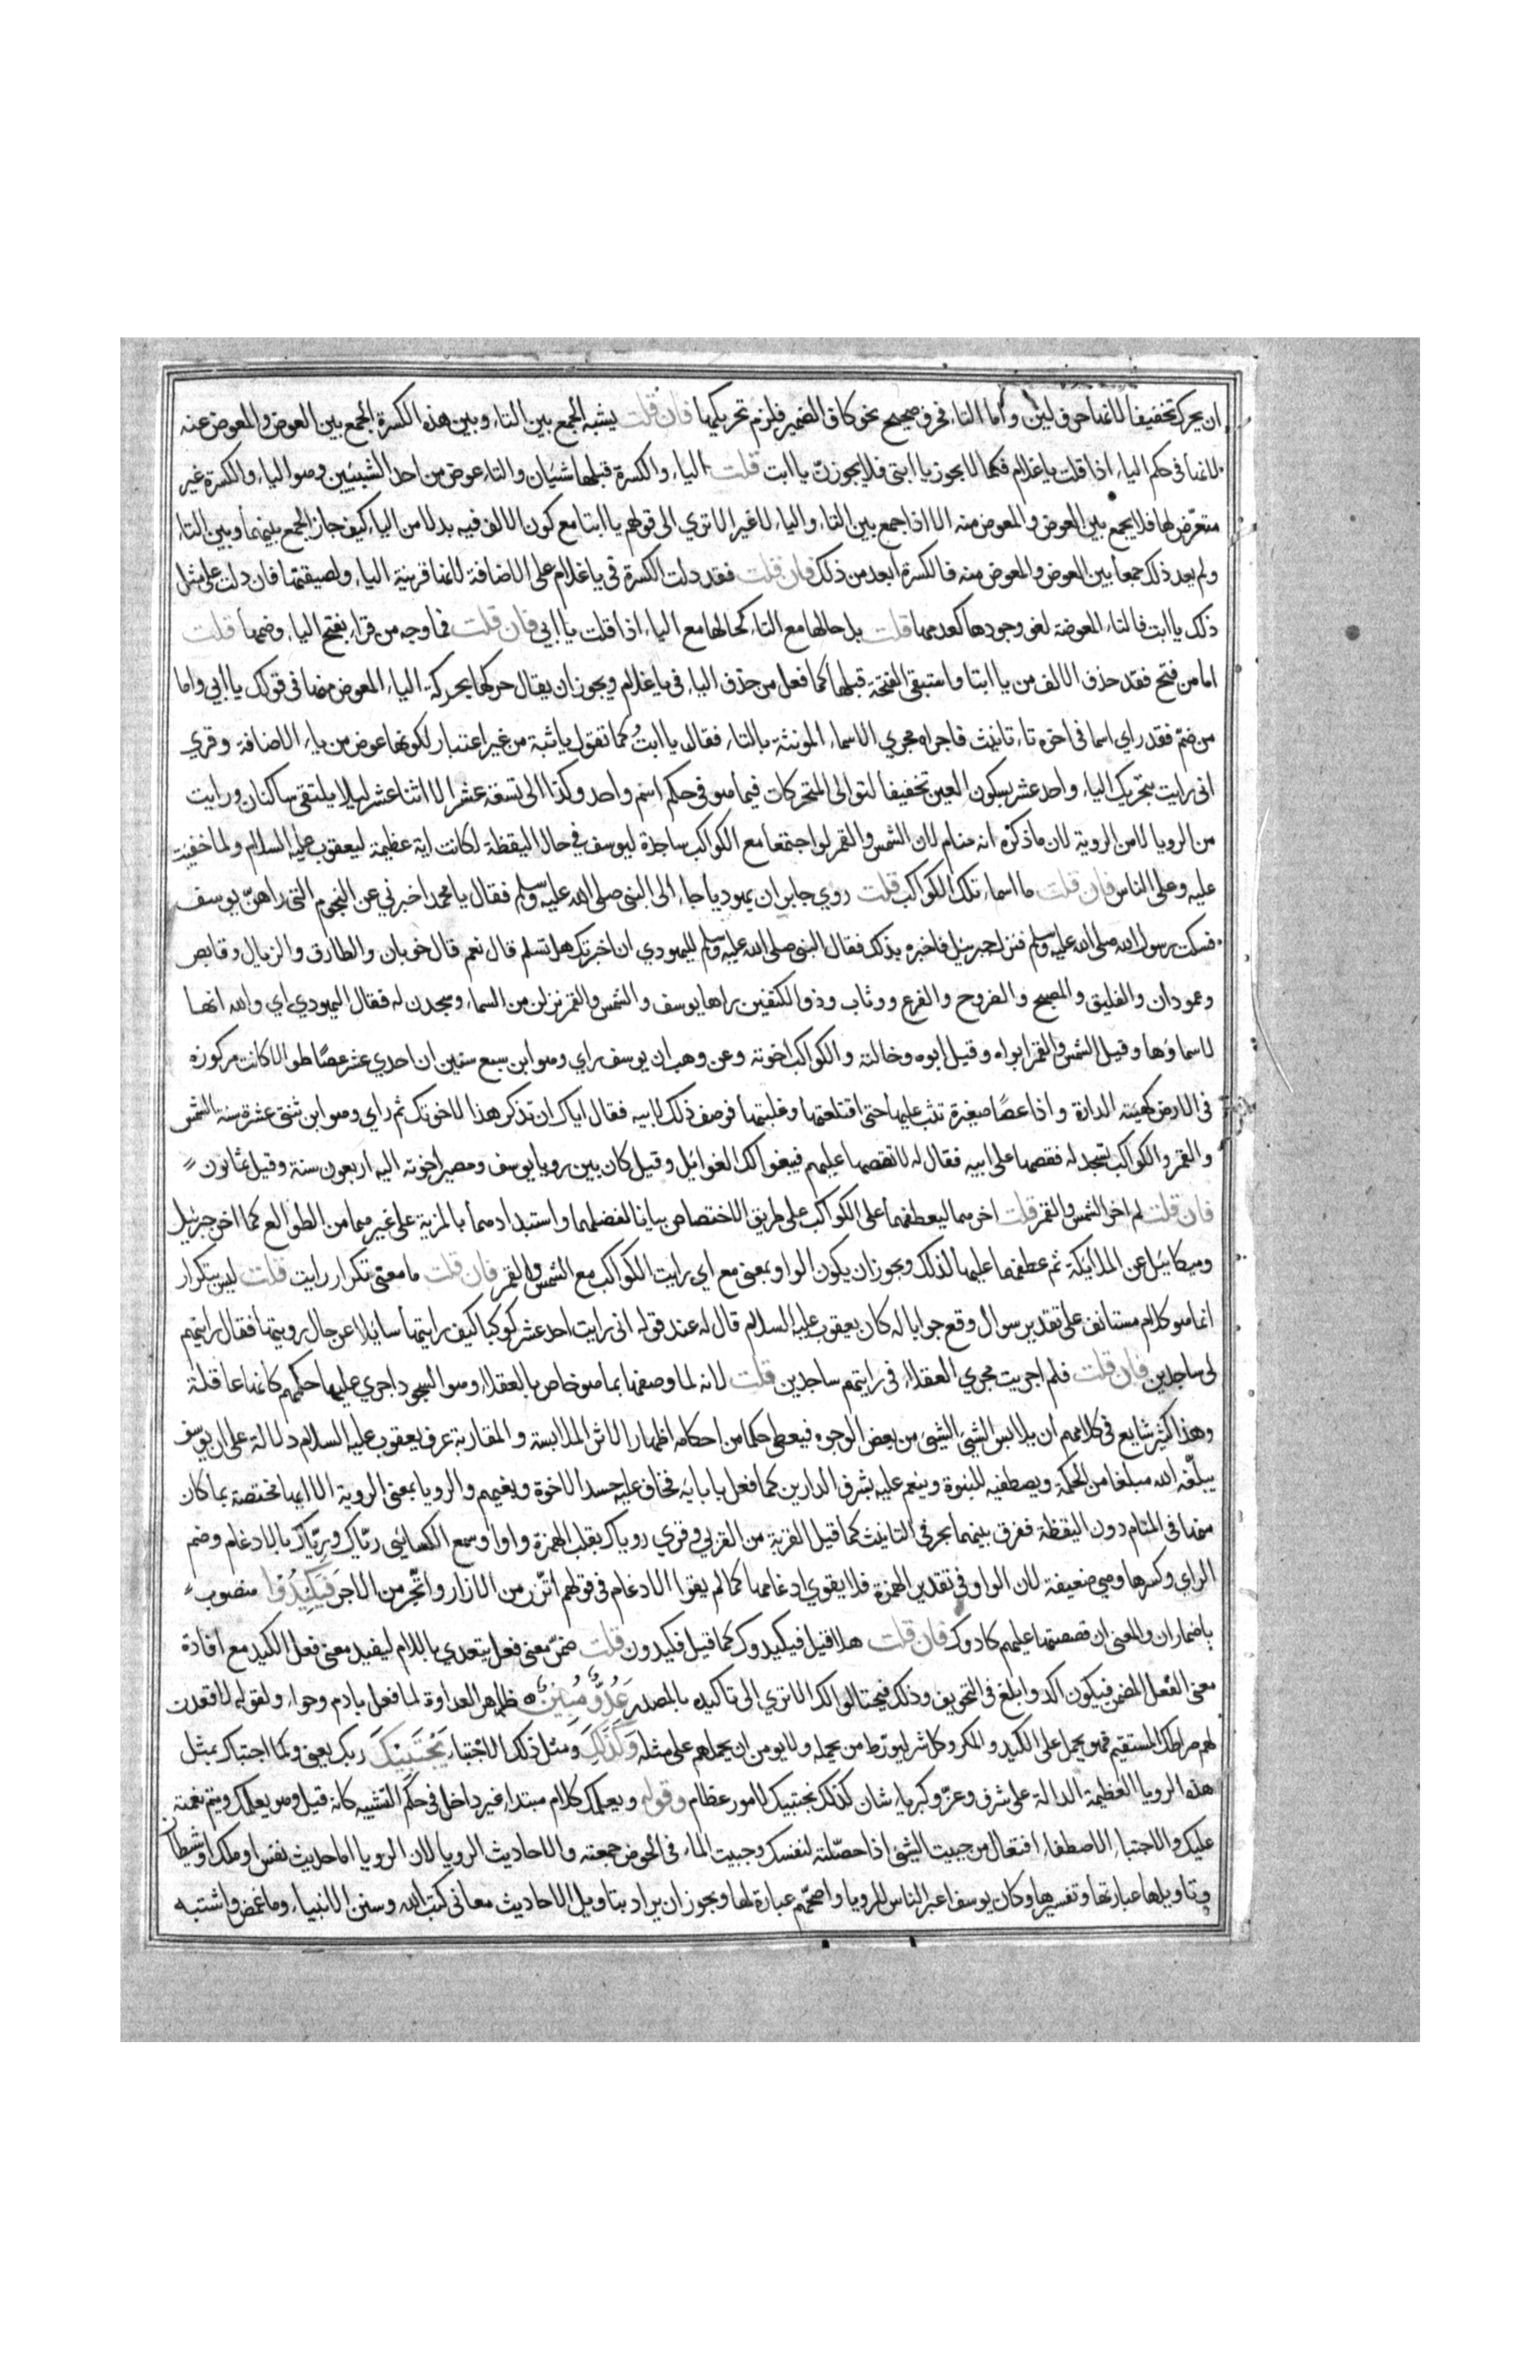 ان يحرك تخفيفا لانها حرف لين واما التاء فحرف صحيح نحو كاف الضمير فلزم تحريكها فان قلت يشبه الجمع بين التاء وبين هذه الكسرة الجمع بين العوض والمعوض عنه
لانها في حكم الياء اذا قلت ياغلام فكما لا يجوز يا ابتي فلا يجوزن يا ابت قلت الياء والكسرة قبلها شيئان والتاء عوض من احد الشيئين وهو الياء والكسرة غير
متعرّض لها فلا يجمع بين العوض والمعوض منه الا اذا جمع بين التاء والياء لا غير الا تري الى قولهم يا ابتا مع كون الالف فيه بدلا من الياء كيف جاز الجمع بينهما وبين التاء
ولم يعد ذلك جمعا بين العوض والمعوض منه فالكسرة ابعد من ذلك فان قلت فقد دلت الكسرة في ياغلام على الاضافة لانها قرينة الياء ولصيقتها فان دلت على مثل
ذلك يا ابت فالتاء المعوضة لغو وجودها كعدمها قلت بل حالها مع التاء كحالها مع الياء اذا قلت يا ابي فان قلت فما وجه من قراء بفتح الياء وضمها قلت
اما من فتح فقد حذف الالف من يا ابتا واستبقى الفتحة قبلها كما فعل من حذف الياء في ياغلام ويجوز ان يقال حركها بحركة الياء المعوض منها في قولك يا ابي واما
من ضمّ فقد راي اسما في اخره تاء تانيث فاجراه مجري الاسماء المونثة بالتاء فقال يا ابتُ كما تقول ياثبة من غير اعتبار لكونها عوض من ياء الاضافة وقري
اني رايت بتحريك الياء واحد عشر بسكون العين تخفيفا لتوالى المتحركات فيما هو في حكم اسم واحد وكذا الى تسعة عشر الا اثنا عشر ليلا يلتقي ساكنان ورايت
من الرويا لا من الروية لان ما ذكره انه منام لان الشمس والقمر لو اجتمعا مع الكواكب ساجدة ليوسف في حال اليقظة لكانت اية عظيمة ليعقوب عليه السلام ولما خفيت
عليه وعلى الناس فان قلت ما اسماء تلك الكواكب قلت روي جابر ان يهوديا جاء الى النبي صلى الله عليه وسلم فقال يا محمد اخبرني عن النجوم التي راهنّ يوسف
فسكت رسول الله صلى الله عليه وسلم فنزل جبرئيل فاخبره بذلك فقال النبي صلى الله عليه وسلم لليهودي ان اخبرتك هل تسلم قال نعم قال خوبان والطارق والزيال وقابص
وعمودان والفليق والمصبح والضروح والفرغ ووثاب وذو الكتفين راها يوسف والشمس والقمر نزلن من السماء وسجدن له فقال اليهودي اي والله انها
لاسماؤها وقيل الشمس والقمر ابواه وقيل ابوه وخالته والكواكب اخوته وعن وهب ان يوسف راي وهو ابن سبع سنين ان احدي عشر عصًا طوالا كانت مركوزة
في الارض كهيئة الدارة واذا عصًا صغيرة تثب عليها حتى اقتلعتها وغلبتها فوصف ذلك لابيه فقال اياك ان تذكر هذا لاخوتك ثم راي وهو ابن ثنتى عشرة سنة الشمس
والقمر والكواكب تسجد له فقصها على ابيه فقال له لا تقصها عليهم فيبغوا لك الغوائل وقيل كان بين رويا يوسف ومصير اخوته اليه اربعون سنة وقيل ثمانون
فان قلت لم اخر الشمس والقمر قلت اخرهما ليعطفهما على الكواكب على طريق الاختصاص بيانا لفضلهما واستبدادهما بالمزية على غيرهما من الطوالع كما اخر جبرئيل
وميكائيل عن الملائكة ثم عطفهما عليها لذلك ويجوز ان يكون الواو بمعنى مع اي رايت الكواكب مع الشمس والقمر فان قلت ما معنى تكرار رايت قلت ليس بتكرار
انما هو كلام مستانف على تقدير سوال وقع جوابا له كان يعقوب عليه السلام قال له عند قوله اني رايت احد عشر كوكبا كيف رايتها سايلا عن حال رويتها فقال رايتهم
لى ساجدين فان قلت فلم اجريت مجري العقلاء في رايتهم ساجدين قلت لانه لما وصفها بما هو خاص بالعقلاء وهو السجود اجري عليها حكمهم كانها عاقلة
وهذا كثير شايع في كلامهم ان يلابس الشيئ الشيئ من بعض الوجوه فيعطى حكما من احكامه اظهارا لاثر الملابسة والمقاربة عرف يعقوب عليه السلام دلالة على ان يوسف
يبلّغه الله مبلغا من الحكمة ويصطفيه للنبوة وينعم عليه بشرف الدارين كما فعل بابايه فخاف عليه حسد الاخوة وبغيهم والرويا بمعنى الروية الا انها مختصة بما كان
منها في المنام دون اليقظة ففرق بينهما بحرفي التانيث كما قيل القربة من القربي وقري روياك بقلب الهمزة واوا وسمع الكسائي ريّاك وريّاك بالادغام وضم
الراي وكسرها وهي ضعيفة لان الواو في تقدير الهمزة فلا يقوي ادغامها كما لم يقوا الادغام في قولهم اتّزر من الازار واتّجر من الاجر فَيَكِيدُوا منصوب
باضمار ان والمعنى ان قصصتها عليهم كادوك فان قلت هلا قيل فيكيدوك كما قيل فكيدون قلت ضمّن معنى فعل يتعدي باللام ليفيد معنى فعل الكيد مع افادة
معنى الفعل المضمن فيكون اكد وابلغ في التخويف وذلك فيحتالوا لك الا تري الى تاكيده بالمصدر عَدُوٌّ مُبِينٌ ظاهر العداوة لما فعل بادم وحواء ولقوله لاقعدن
لهم صراطك المستقيم فهو يحمل على الكيد والمكر وكل شر ليورّط من يحمله ولا يومن ان يحملهم على مثله وَكَذَلِكَ ومثل ذلك الاجتباء يَجْتَبِيكَ ربك يعني وكما اجتباك بمثل
هذه الرويا العظيمة الدالة على شرف وعزّ وكبرياء شان كذلك يجتبيك لامور عظام وقوله ويعلمك كلام مبتداء غير داخل في حكم التشبيه كانه قيل وهو يعلمك ويتم نعمته
عليك والاجتباء الاصطفاء افتعال من جبيت الشيئ اذا حصّلته لنفسك وجبيت الماء في الحوض جمعته والاحاديث الرويا لان الرويا اما حديث نفس او ملك او شيطان
وتاويلها عبارتها وتفسيرها وكان يوسف اعبر الناس للرويا واصحّهم عبارة لها ويجوز ان يراد بتاويل الاحاديث معاني كتب الله وسنن الانبياء وما غمض واشتبه